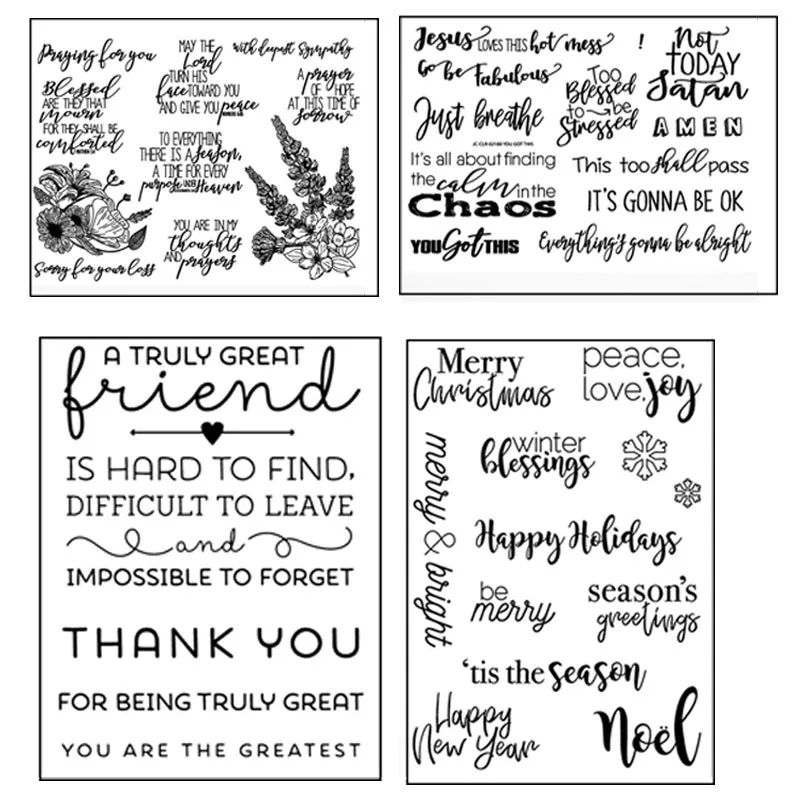 Praying for you
Blessed
ARE THEY THAT
mourn
FOR THEY SHALL BE
comforted
Sorry for your loss
MAY THE
Lord
TURN HIS
face TOWARD YOU
AND GIVE YOU peace
TO EVERYTHING
THERE IS A Season,
A TIME FOR EVERY
purpose UNDER Heaven
YOU ARE IN MY
thoughts
AND prayers
with deepest Sympathy
A prayer
OF HOPE
AT THIS TIME OF
Sorrow
Jesus LOVES THIS hot mess !
Go be Fabulous
Just breathe
JC-CLR-62160 YOU GOT THIS
Too
Blessed
to be
Stressed
Not
TODAY
Satan
AMEN
It's all about finding
the calm in the
Chaos
This too shall pass
IT'S GONNA BE OK
YOU Got THIS
Everything's gonna be alright
A TRULY GREAT
friend
IS HARD TO FIND,
DIFFICULT TO LEAVE
and
IMPOSSIBLE TO FORGET
THANK YOU
FOR BEING TRULY GREAT
YOU ARE THE GREATEST
Merry
Christmas
peace,
love, joy
merry & bright
winter
blessings
Happy Holidays
be
merry
season's
greetings
'tis the season
Happy
New Year
Noël